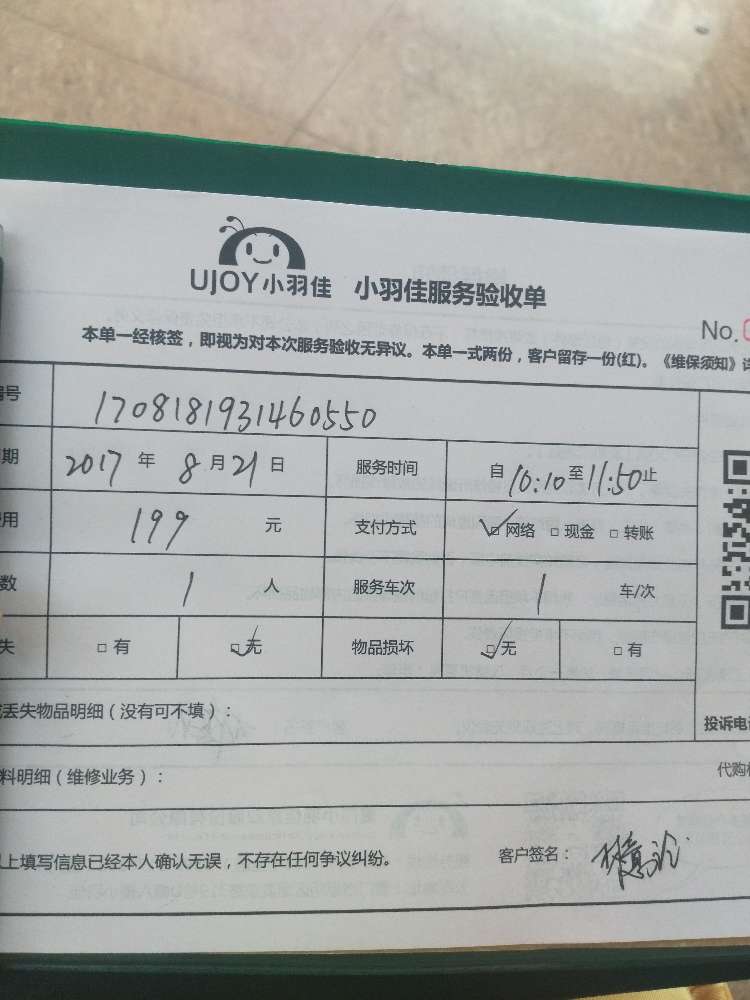 UJOY小羽佳 小羽佳服务验收单
No.
本单一经核签，即视为对本次服务验收无异议。本单一式两份，客户留存一份(红)。《维保须知》详
号 1708181931460550
期 2017 年 8 月 21 日 服务时间 自 10:10 至 11:50 止
用 199 元 支付方式 ☑网络 □现金 □转账
数 1 人 服务车次 1 车/次
失 □有 ☑无 物品损坏 ☑无 □有
丢失物品明细（没有可不填）：
投诉电话
料明细（维修业务）：
代购
上填写信息已经本人确认无误，不存在任何争议纠纷。 客户签名：